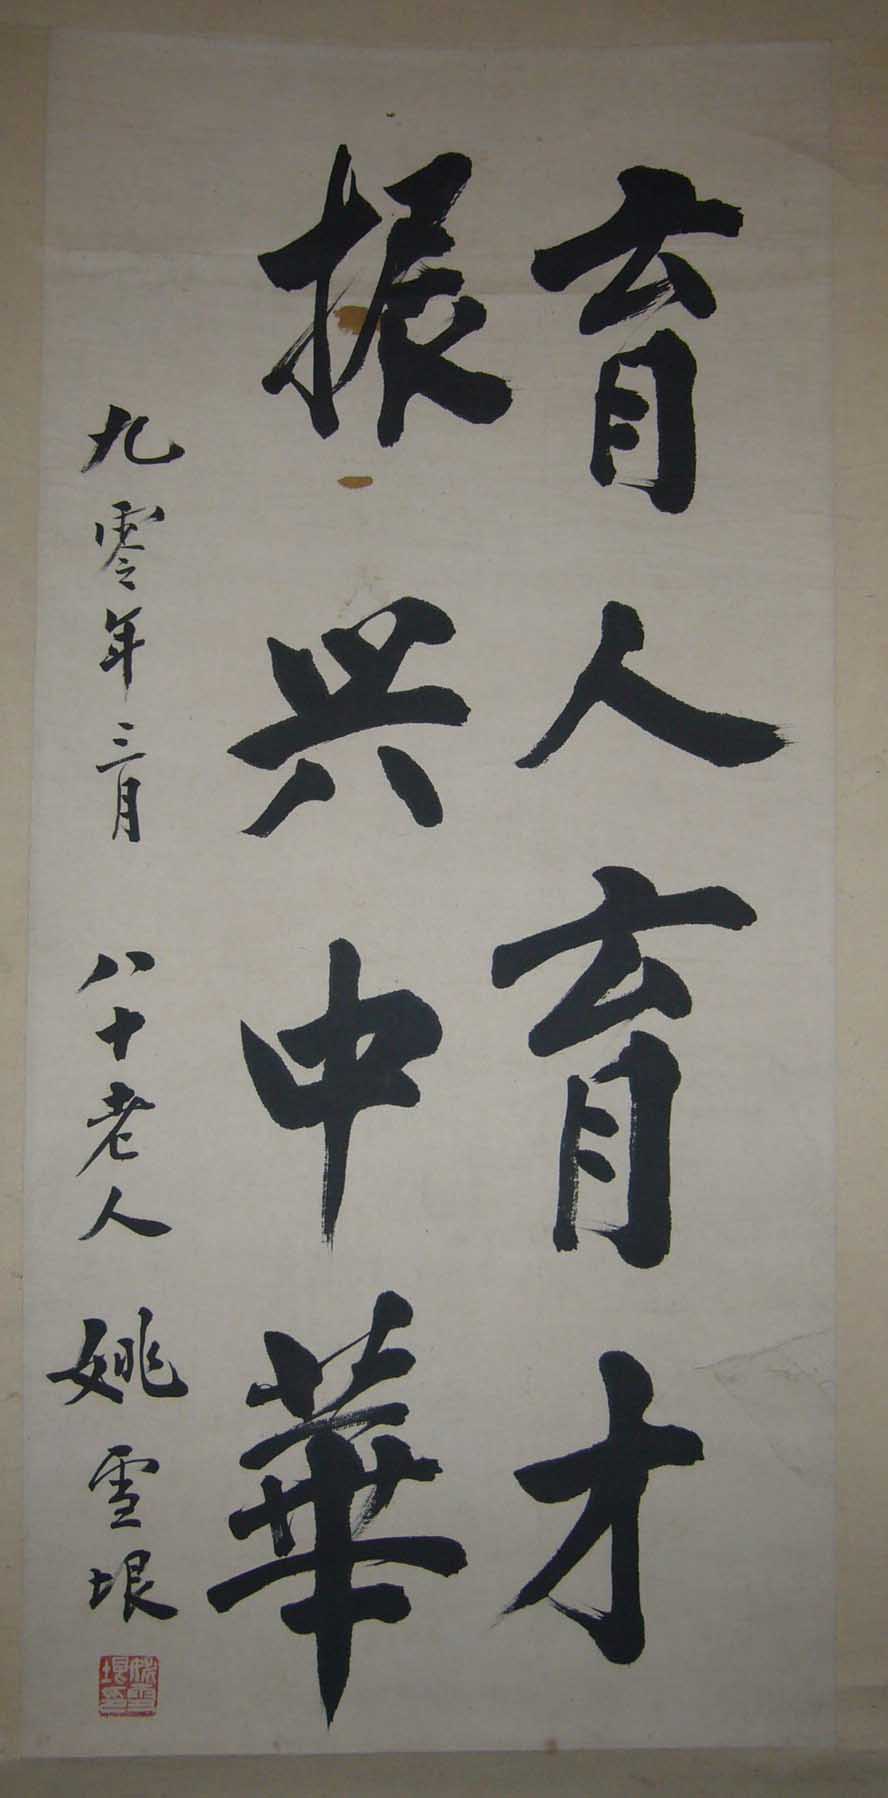 育人育才
振兴中華
九零年三月 八十老人 姚雪垠
姚雪垠印